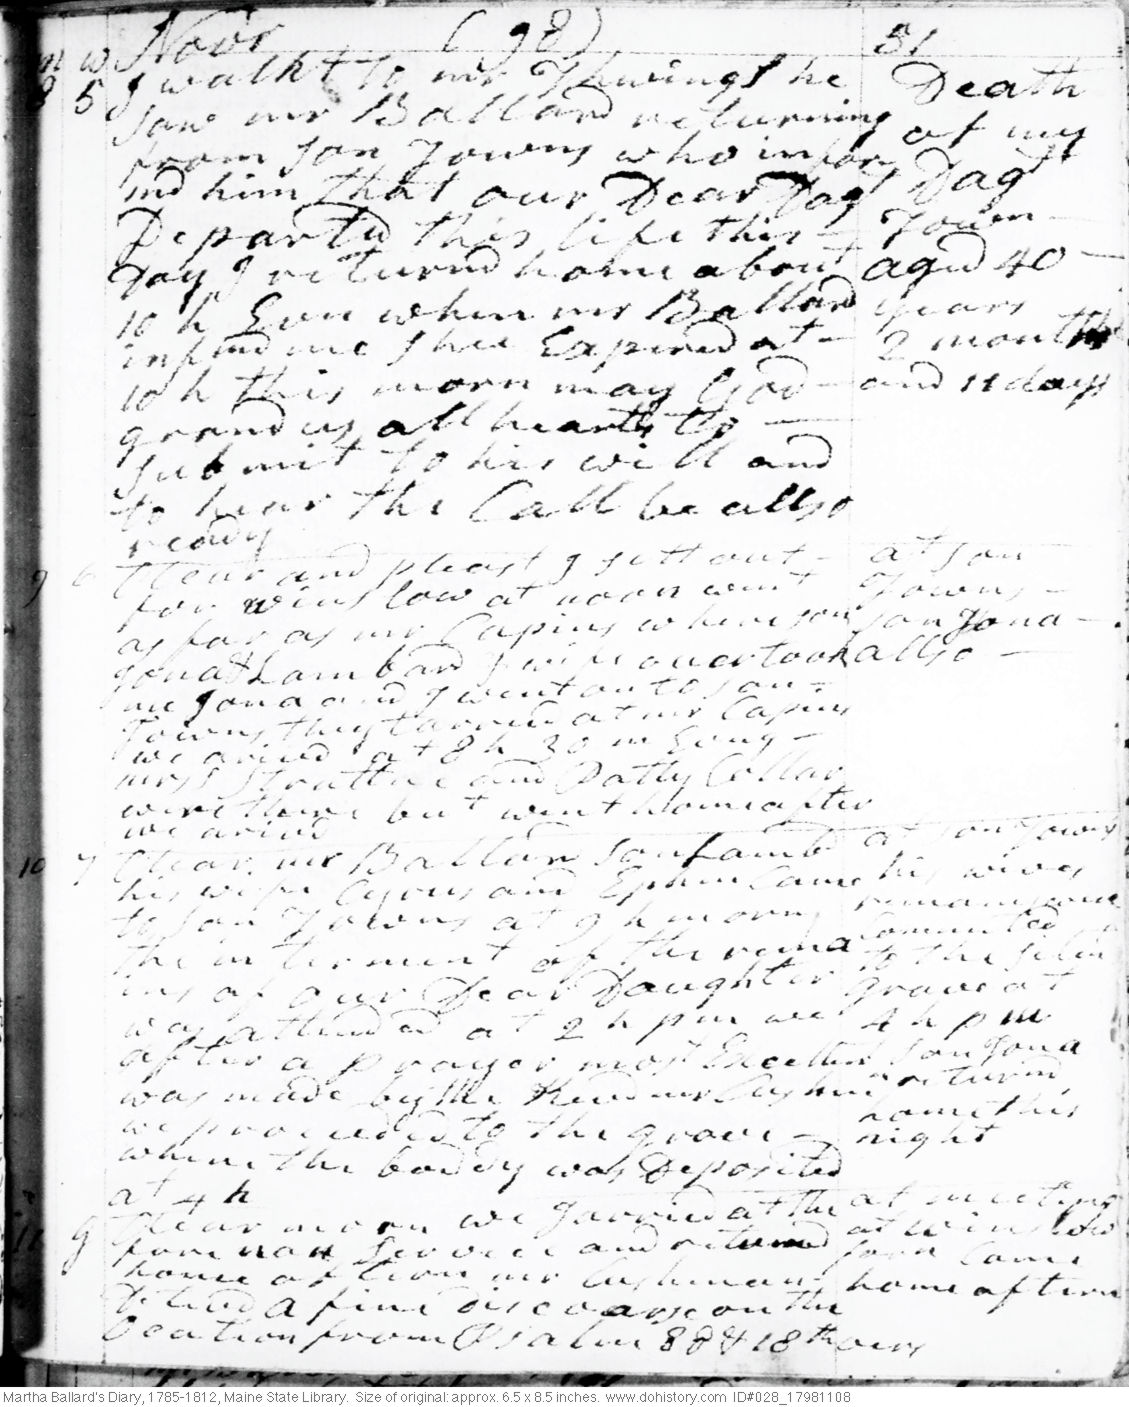 Novr (98) 31
m w
8 5 I walkt to mr Thwings he
saw mr Ballard returning
from Son Towns who infor
md him that our Dear Dagt
Departed this life this
Day I returnd home about
10 h Evn when mr Ballard
infmd me Shee Expired at
10 h this morn may God
grand us all hearts to
Submit to his will and
to hear the Call be allso
ready
Death
of my
Dagt
Town
aged 40
years
2 months
and 11 days
9 6 Clear and pleast I sett out
for winslow at noon went
as far as mr Capins where son
Jona & Lambard & wife overtook
me Jona and I went on to Son
Towns they tarried at mr Capins
we arivd at 8 h 30 m Evng
mrss Strattne and Patty Collar
were there but went home after
we arivd
at Son
Towns
Son Jona
allso
10 7 Clear mr Ballard Son Lambd
his wife Cyrus and Ephm Came
to Son Towns at 9 h morng
the interment of the rema
ins of our Dear Daughter
was attended at 2 h pm we
after a prayer most Excellent
was made by the Revd mr Cushman
we proceeded to the grave
where the boddy was Deposited
at 4 h
at Son Towns
his wives
remains were
Committed
to the Silen
grave at
4 h pm
Son Jona
returnd
home this
night
11 g Clear morn we Tarried at the
fore noon Service and returnd
home aftern mr Cushman
Delivd a fine discoarse on the
ocation from Psalm 88 & 18th vers
at meeting
at winslow
forn Came
home aftern
Martha Ballard's Diary, 1785-1812, Maine State Library. Size of original: approx. 6.5 x 8.5 inches. www.dohistory.com ID#028_17981108